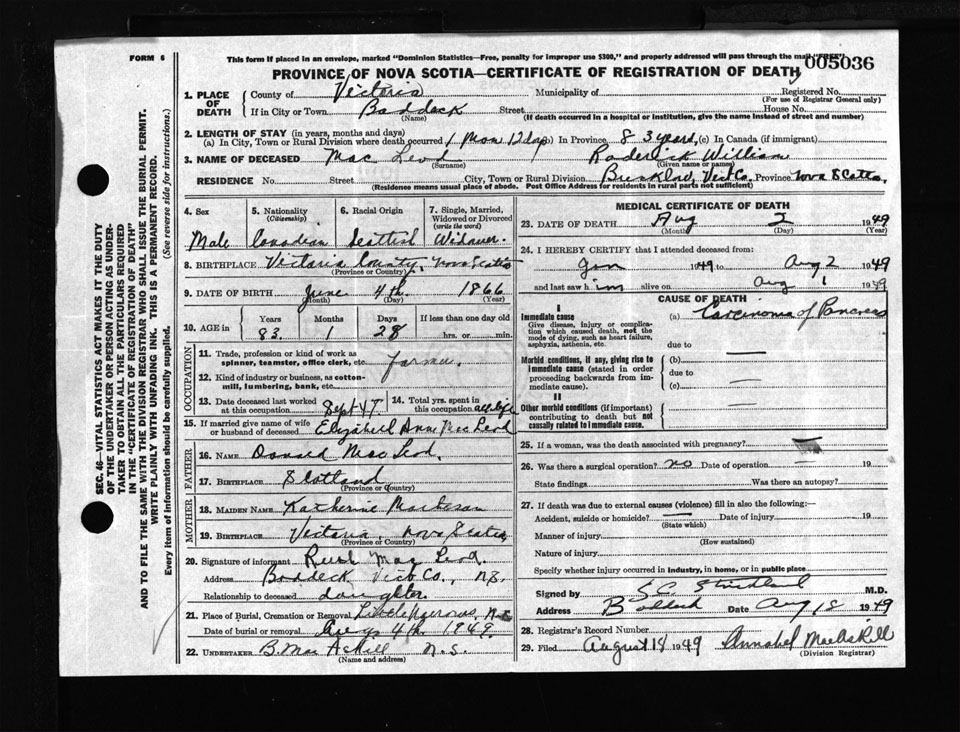 This form if placed in an envelope, marked "Dominion Statistics—Free, penalty for improper use $300," and properly addressed will pass through the mail "FREE"
FORM 6
PROVINCE OF NOVA SCOTIA—CERTIFICATE OF REGISTRATION OF DEATH
005036
1. PLACE OF DEATH
County of Victoria Municipality of Registered No.
(For use of Registrar General only)
If in City or Town Baddeck Street House No.
(Name) (If death occurred in a hospital or institution, give the name instead of street and number)
2. LENGTH OF STAY (in years, months and days)
(a) In City, Town or Rural Division where death occurred 1 Mon 12 days (b) In Province 83 years (c) In Canada (if immigrant)
3. NAME OF DECEASED Mac Leod Roderick William
(Surname) (Given name or names)
RESIDENCE No. Street City, Town or Rural Division Vict Co. Province Nova Scotia
(Residence means usual place of abode. Post Office Address for residents in rural parts not sufficient)
4. Sex Male
5. Nationality (Citizenship) Canadian
6. Racial Origin Scottish
7. Single, Married, Widowed or Divorced (write the word) Widower.
8. BIRTHPLACE Victoria County, Nova Scotia
(Province or Country)
9. DATE OF BIRTH June 4th 1866
(Month) (Day) (Year)
10. AGE in Years Months Days If less than one day old
83. 1 28 hrs. or min.
OCCUPATION
11. Trade, profession or kind of work as spinner, teamster, office clerk, etc. farmer.
12. Kind of industry or business, as cotton-mill, lumbering, bank, etc.
13. Date deceased last worked at this occupation Sept 47
14. Total yrs. spent in this occupation all life
15. If married give name of wife or husband of deceased Elizabeth Ann Mac Leod
FATHER
16. NAME Donald Mac Leod.
17. BIRTHPLACE Scotland
(Province or Country)
MOTHER
18. MAIDEN NAME Katherine
19. BIRTHPLACE Victoria, Nova Scotia
(Province or Country)
20. Signature of informant Mac Leod.
Address Baddeck Vict Co., N.S.
Relationship to deceased daughter
21. Place of Burial, Cremation or Removal Little Narrows, N.S.
Date of burial or removal Aug 4th 1949
22. UNDERTAKER B. Mac Askill N.S.
(Name and address)
MEDICAL CERTIFICATE OF DEATH
23. DATE OF DEATH Aug 2 1949
(Month) (Day) (Year)
24. I HEREBY CERTIFY that I attended deceased from:
Jan 1949 to Aug 2 1949
and last saw him alive on Aug 1 1949
CAUSE OF DEATH
I
Immediate cause
Give disease, injury or complication which caused death, not the mode of dying, such as heart failure, asphyxia, asthenia, etc.
(a) Carcinoma of Pancreas
due to
Morbid conditions, if any, giving rise to immediate cause (stated in order proceeding backwards from immediate cause).
(b)
due to
(c)
II
Other morbid conditions (if important) contributing to death but not causally related to immediate cause.
25. If a woman, was the death associated with pregnancy?
26. Was there a surgical operation? no Date of operation — 19
State findings Was there an autopsy?
27. If death was due to external causes (violence) fill in also the following:—
Accident, suicide or homicide? — Date of injury 19
(State which)
Manner of injury
(How sustained)
Nature of injury
Specify whether injury occurred in industry, in home, or in public place
Signed by M.D.
Address Baddeck Date Aug 18 1949
28. Registrar's Record Number
29. Filed August 18 1949 Annabel MacAskill
(Division Registrar)
SEC. 46—VITAL STATISTICS ACT MAKES IT THE DUTY
OF THE UNDERTAKER OR PERSON ACTING AS UNDERTAKER TO OBTAIN ALL THE PARTICULARS REQUIRED
IN THE "CERTIFICATE OF REGISTRATION OF DEATH"
AND TO FILE THE SAME WITH THE DIVISION REGISTRAR WHO SHALL ISSUE THE BURIAL PERMIT.
WRITE PLAINLY WITH UNFADING INK. THIS IS A PERMANENT RECORD.
Every item of information should be carefully supplied. (See reverse side for instructions.)